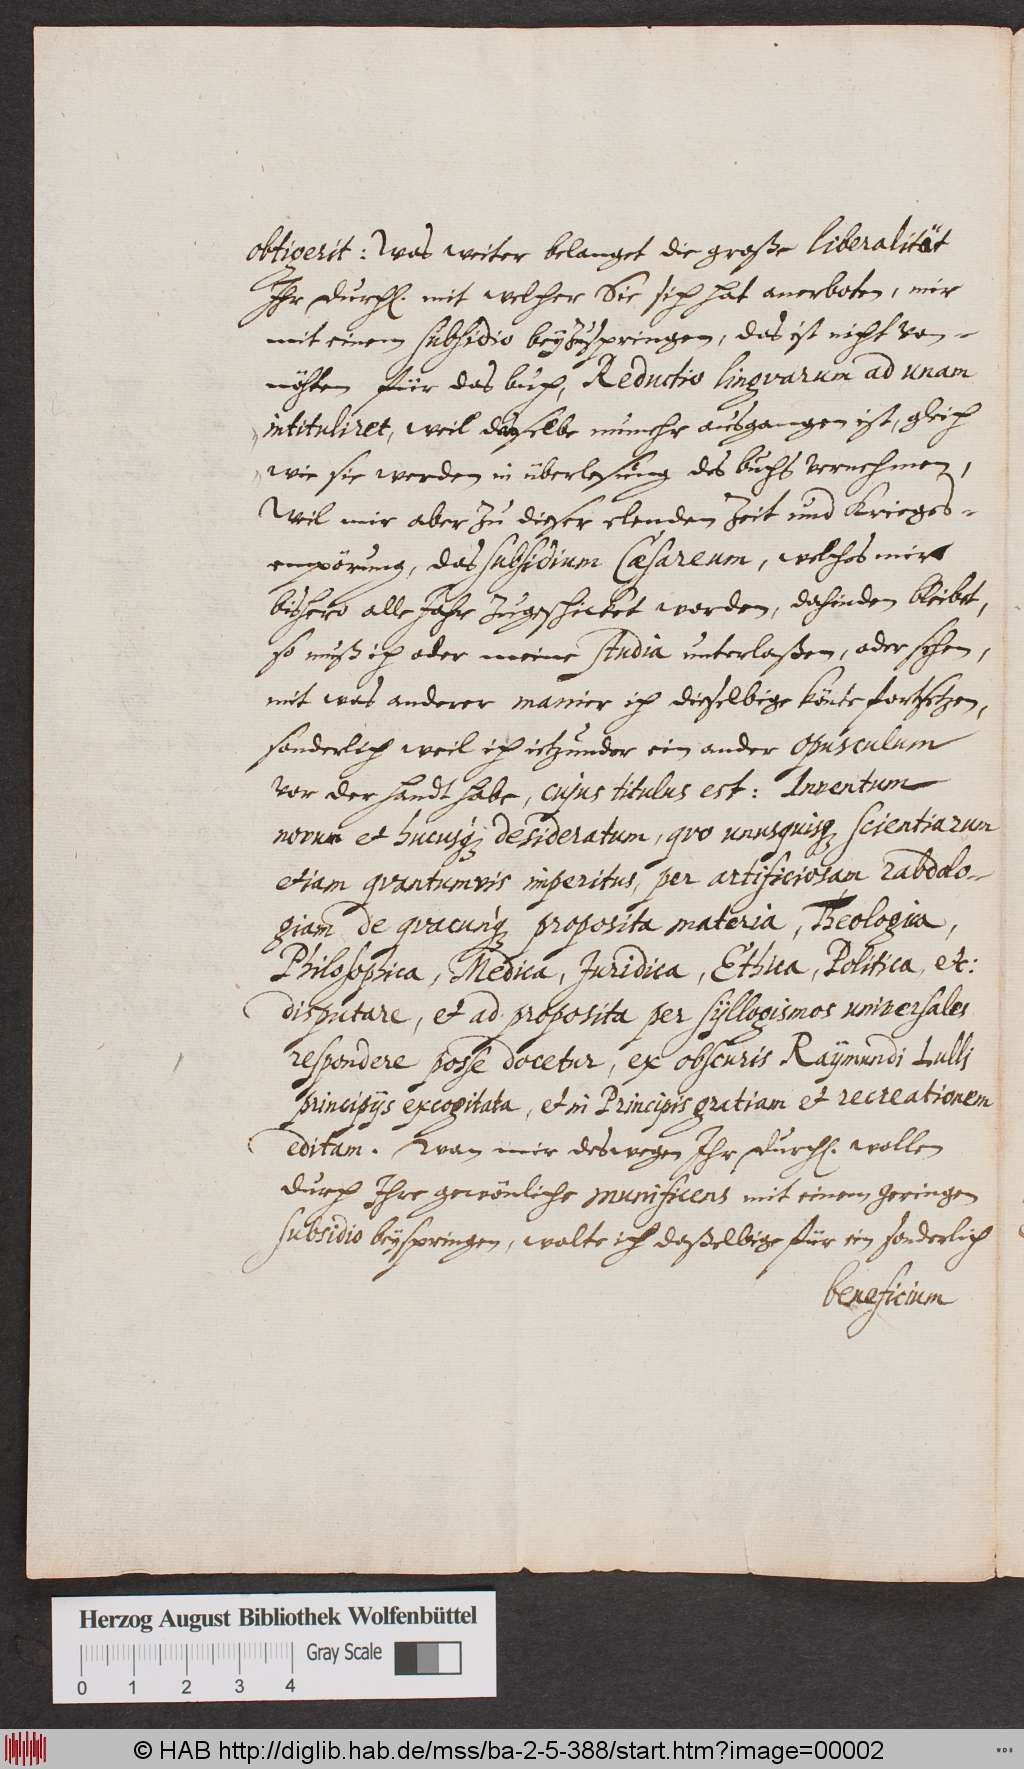 obtigerit: Was weiter belanget die große liberalität
Ihr Durchl. mit welcher Sie sich hat anerboten, mir
mit einem subsidio beyzuspringen, das ist nicht von-
nöhten für das buch, Reductio lingvarum ad unam
intituliret, weil dasselbe nunmehr ausgangen ist, gleich
wie sie werden in überlesung des buchs vernehmen,
Weil mir aber zu dieser elenden Zeit und Krieges-
empörung, das subsidium Cæsareum, welches mir
bishero alle Jahr zugeschicket worden, dahinden bleibet,
so muß ich oder meine studia unterlaßen, oder sehen,
mit was anderer manier ich dieselbige könte fortsetzen,
sonderlich weil ich ietzunder ein ander opusculum
vor der handt habe, cujus titulus est: Inventum
novum et hucusq; desideratum, qvo unusquisq; scientiarum
etiam qvantumvis imperitus, per artificiosam rabdolo-
giam de qvacunq; proposita materia, Theologica,
Philosophica, Medica, Juridica, Ethica, Politica, etc:
disputare, et ad proposita per syllogismos universales
respondere posse docetur, ex obscuris Raymundi Lullj
principijs excogitata, et in Principis gratiam et recreationem
editam. Wan mir deswegen Ihr Durchl. wollen
durch Ihre gewönliche munificens mit einem geringen
subsidio beyspringen, wolte ich daßelbige für ein sonderlich
beneficium
Herzog August Bibliothek Wolfenbüttel
Gray Scale
0 1 2 3 4
© HAB http://diglib.hab.de/mss/ba-2-5-388/start.htm?image=00002